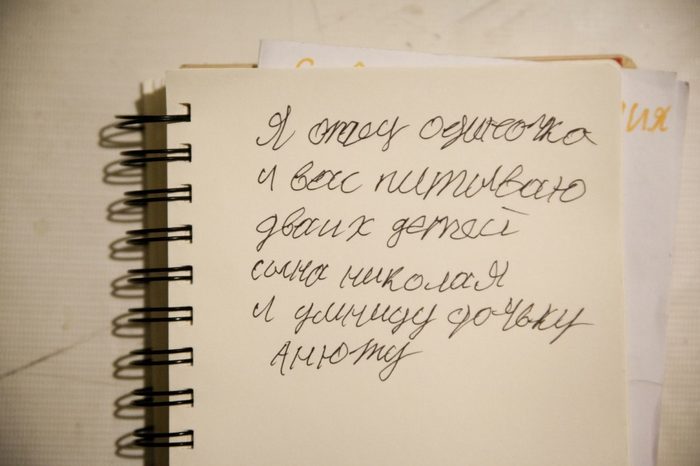 Я отец одиночка
и вас питываю
двоих детей
сына николая
и умницу дочьку
Анюту